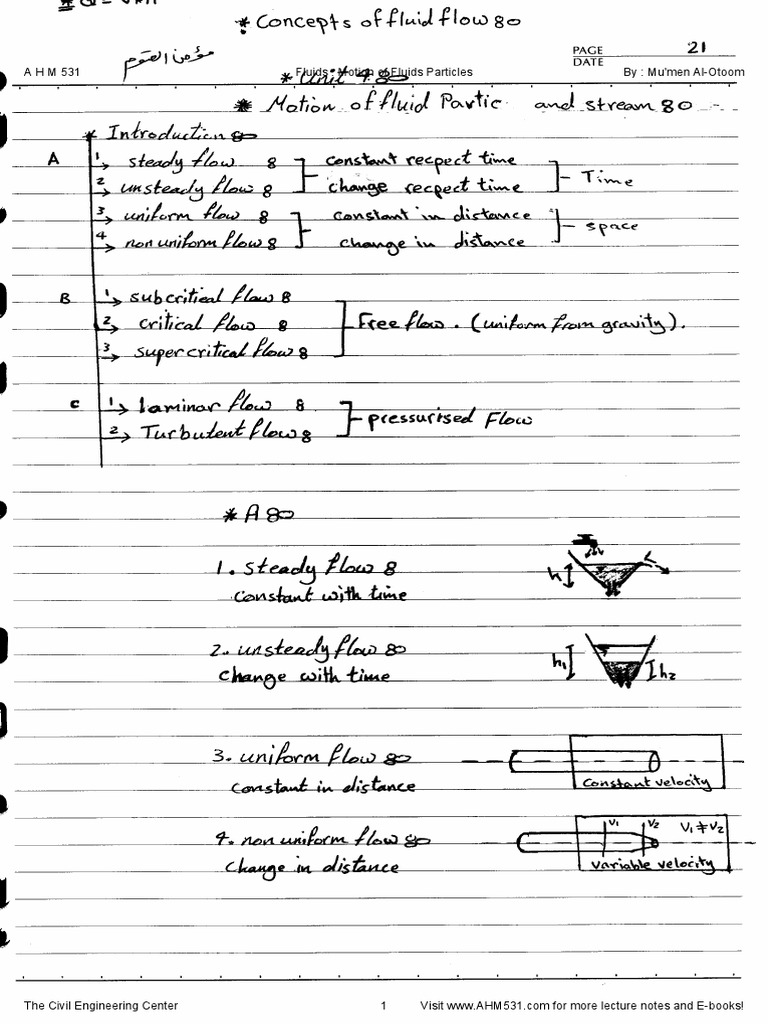 * Concepts of fluid flow 80
PAGE 21
DATE
A H M 531
Fluids : Motion of Fluids Particles
By : Mu'men Al-Otoom
* Unit 4 80
* Motion of fluid Partic and stream 80
* Introduction 80
A
1 → steady flow 8 constant recpect time
2 → unsteady flow 8 change recpect time
Time
3 → uniform flow 8 constant in distance
4 → non uniform flow 8 change in distance
space
B
1 → subcritical flow 8
2 → critical flow 8
3 → supercritical flow 8
Free flow . (uniform from gravity).
C
1 → laminar flow 8
2 → Turbutent flow 8
pressurised Flow
* A 80
1. steady flow 8
constant with time
h
2. unsteady flow 80
change with time
h1
h2
3. uniform flow 80
constant in distance
constant velocity
4. non uniform flow 80
change in distance
V1 V2 V1 ≠ V2
variable velocity
The Civil Engineering Center
1
Visit www.AHM531.com for more lecture notes and E-books!